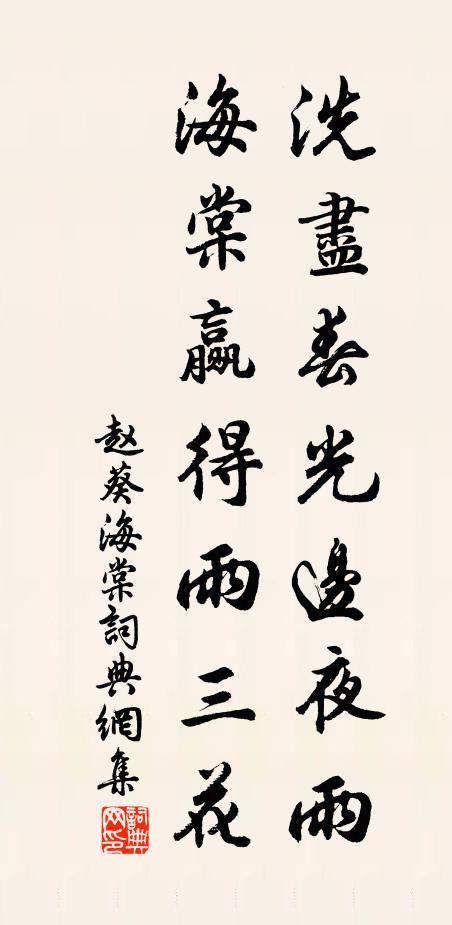 洗盡春光邊夜雨
海棠贏得兩三花
赵葵海棠詞典網集
詞典网印